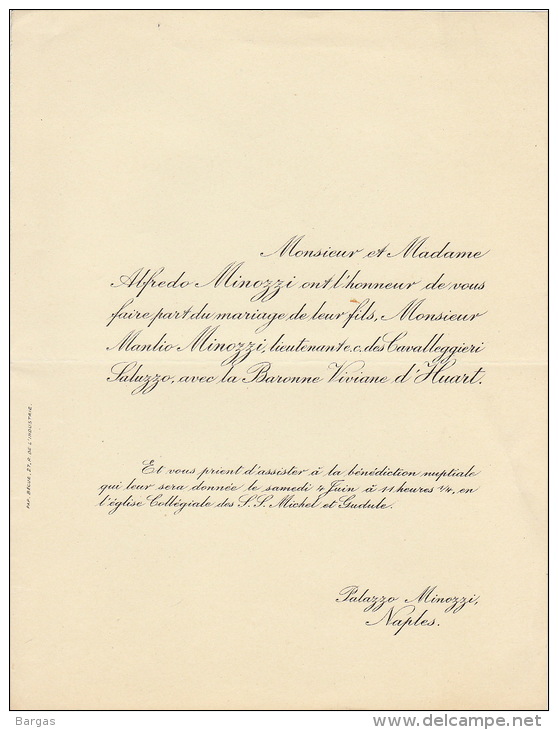 Monsieur et Madame
Alfredo Minozzi ont l'honneur de vous
faire part du mariage de leur fils, Monsieur
Manlio Minozzi, lieutenant e.c. des Cavalleggieri
Saluzzo, avec la Baronne Viviane d'Huart.
Et vous prient d'assister à la bénédiction nuptiale
qui leur sera donnée le samedi 4 Juin à 11 heures 1/4, en
l'église Collégiale des S.S. Michel et Gudule.
Palazzo Minozzi,
Naples.
PAP. BELGE. 27, R. DE L'INDUSTRIE.
Bargas
delcampe.net